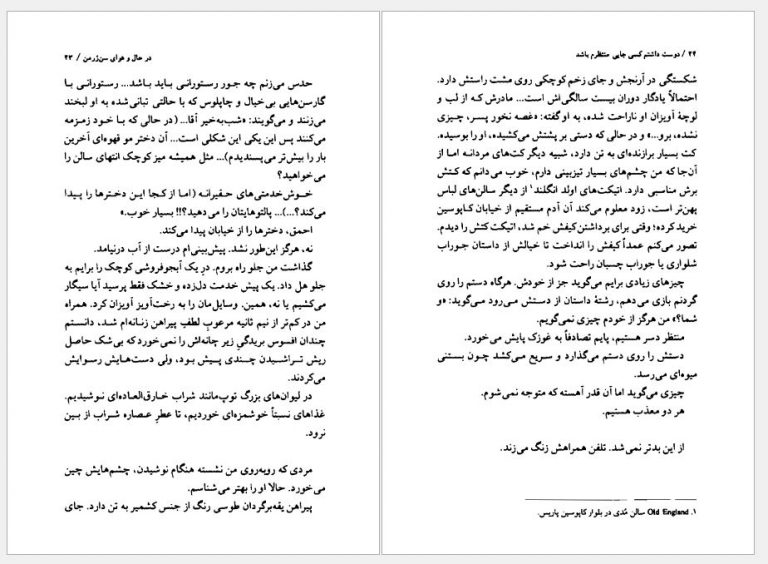 در حال و هوای سن‌ژرمن / ۲۳
حدس می‌زنم چه جور رستورانی باید باشد... رستورانی با
گارسن‌هایی بی‌خیال و چاپلوس که با حالتی تبانی‌شده به او لبخند
می‌زنند و می‌گویند: «شب‌به‌خیر آقا... (در حالی که با خود زمزمه
می‌کنند پس این یکی این شکلی است... آن دختر مو قهوه‌ای آخرین
بار را بیش‌تر می‌پسندیدم)... مثل همیشه میز کوچک انتهای سالن را
می‌خواهید؟
خوش‌خدمتی‌های حقیرانه (اما از کجا این دخترها را پیدا
می‌کند؟...)... پالتوهایتان را می‌دهید؟!! بسیار خوب.»
احمق، دخترها را از خیابان پیدا می‌کند.
نه، هرگز این‌طور نشد. پیش‌بینی‌ام درست از آب درنیامد.
گذاشت من جلو راه بروم. در یک آبجوفروشی کوچک را برایم به
جلو هل داد. یک پیش خدمت دل‌زده و خشک فقط پرسید آیا سیگار
می‌کشیم یا نه، همین. وسایل‌مان را به رخت‌آویز آویزان کرد. همراه
من در کم‌تر از نیم ثانیه مرعوب لطفِ پیراهن زنانه‌ام شد، دانستم
چندان افسوس بریدگیِ زیر چانه‌اش را نمی‌خورد که بی‌شک حاصل
ریش تراشیدن چندی پیش بود، ولی دست‌هایش رسوایش
می‌کردند.
در لیوان‌های بزرگ توپ‌مانند شراب خارق‌العاده‌ای نوشیدیم.
غذاهای نسبتاً خوشمزه‌ای خوردیم، تا عطرِ عصاره شراب از بین
نرود.
مردی که روبه‌روی من نشسته هنگام نوشیدن، چشم‌هایش چین
می‌خورد. حالا او را بهتر می‌شناسم.
پیراهن یقه‌برگردان طوسی رنگ از جنس کشمیر به تن دارد. جای
۲۴ / دوست داشتم کسی جایی منتظرم باشد
شکستگی در آرنجش و جای زخم کوچکی روی مشت راستش دارد.
احتمالاً یادگار دوران بیست سالگی‌اش است... مادرش که از لب و
لوچهٔ آویزان او ناراحت شده، به او گفته: «غصه نخور پسر، چیزی
نشده، برو...» و در حالی که دستی بر پشتش می‌کشیده، او را بوسیده.
کت بسیار برازنده‌ای به تن دارد، شبیه دیگر کت‌های مردانه اما از
آن‌جا که من چشم‌های بسیار تیزبینی دارم، خوب می‌دانم که کتش
برش مناسبی دارد. اتیکت‌های اولد انگلند¹ از دیگر سالن‌های لباس
پهن‌تر است، زود معلوم می‌کند آن آدم مستقیم از خیابان کاپوسین
خرید کرده؛ وقتی برای برداشتن کیفش خم شد، اتیکت کتش را دیدم.
تصور می‌کنم عمداً کیفش را انداخت تا خیالش از داستان جوراب
شلواری یا جوراب چسبان راحت شود.
چیزهای زیادی برایم می‌گوید جز از خودش. هرگاه دستم را روی
گردنم بازی می‌دهم، رشتهٔ داستان از دستش می‌رود می‌گوید: «و
شما؟» من هرگز از خودم چیزی نمی‌گویم.
منتظر دسر هستیم، پایم تصادفاً به غوزک پایش می‌خورد.
دستش را روی دستم می‌گذارد و سریع می‌کشد چون بستنی
میوه‌ای می‌رسد.
چیزی می‌گوید اما آن قدر آهسته که متوجه نمی‌شوم.
هر دو معذب هستیم.
از این بدتر نمی‌شد. تلفن همراهش زنگ می‌زند.
۱. Old England سالن مُدی در بلوار کاپوسین پاریس.